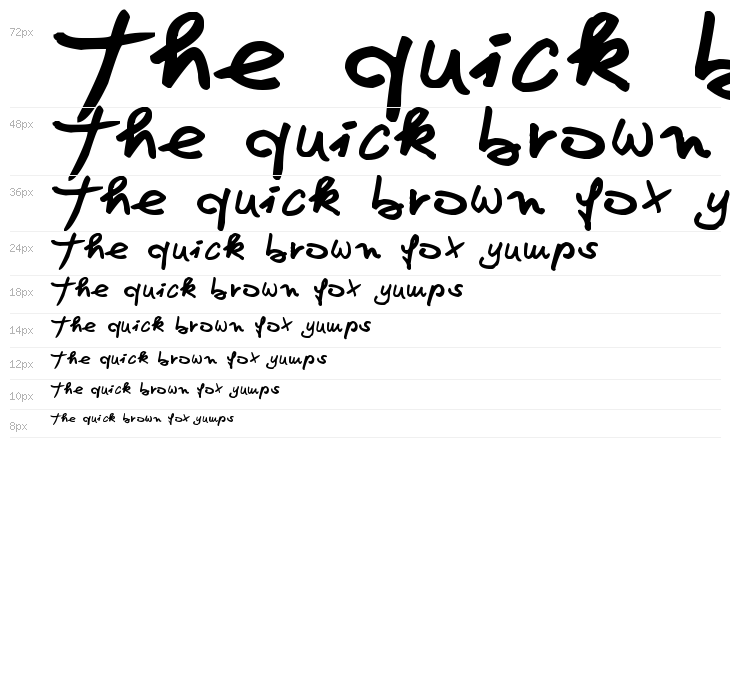 72px The quick b
48px The quick brown
36px The quick brown fox y
24px The quick brown fox yumps
18px The quick brown fox yumps
14px The quick brown fox yumps
12px The quick brown fox yumps
10px The quick brown fox yumps
8px The quick brown fox yumps